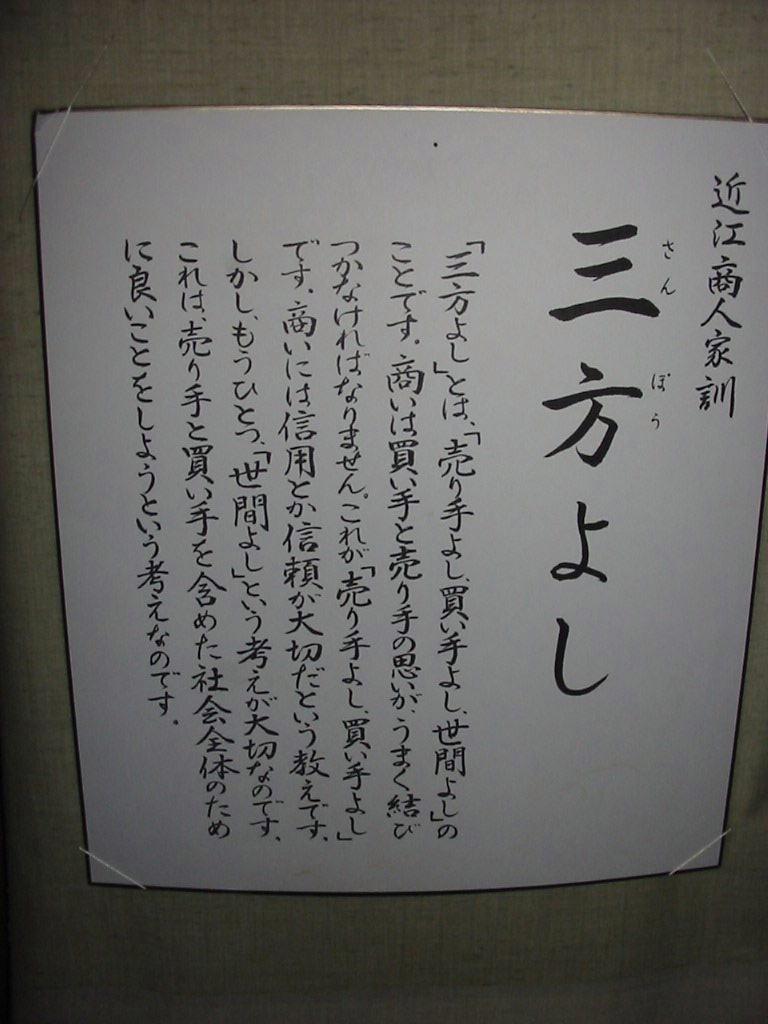 近江商人家訓
三方よし
さんぽう
「三方よし」とは、「売り手よし、買い手よし、世間よし」の
ことです。商いは買い手と売り手の思いが、うまく結び
つかなければなりません。これが「売り手よし、買い手よし」
です。商いには信用とか信頼が大切だという教えです、
しかし、もうひとつ、「世間よし」という考えが大切なのです、
これは、売り手と買い手を含めた社会全体のため
に良いことをしようという考えなのです。